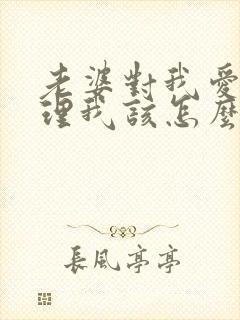 老婆對我愛
理我該怎麼
長風亭亭